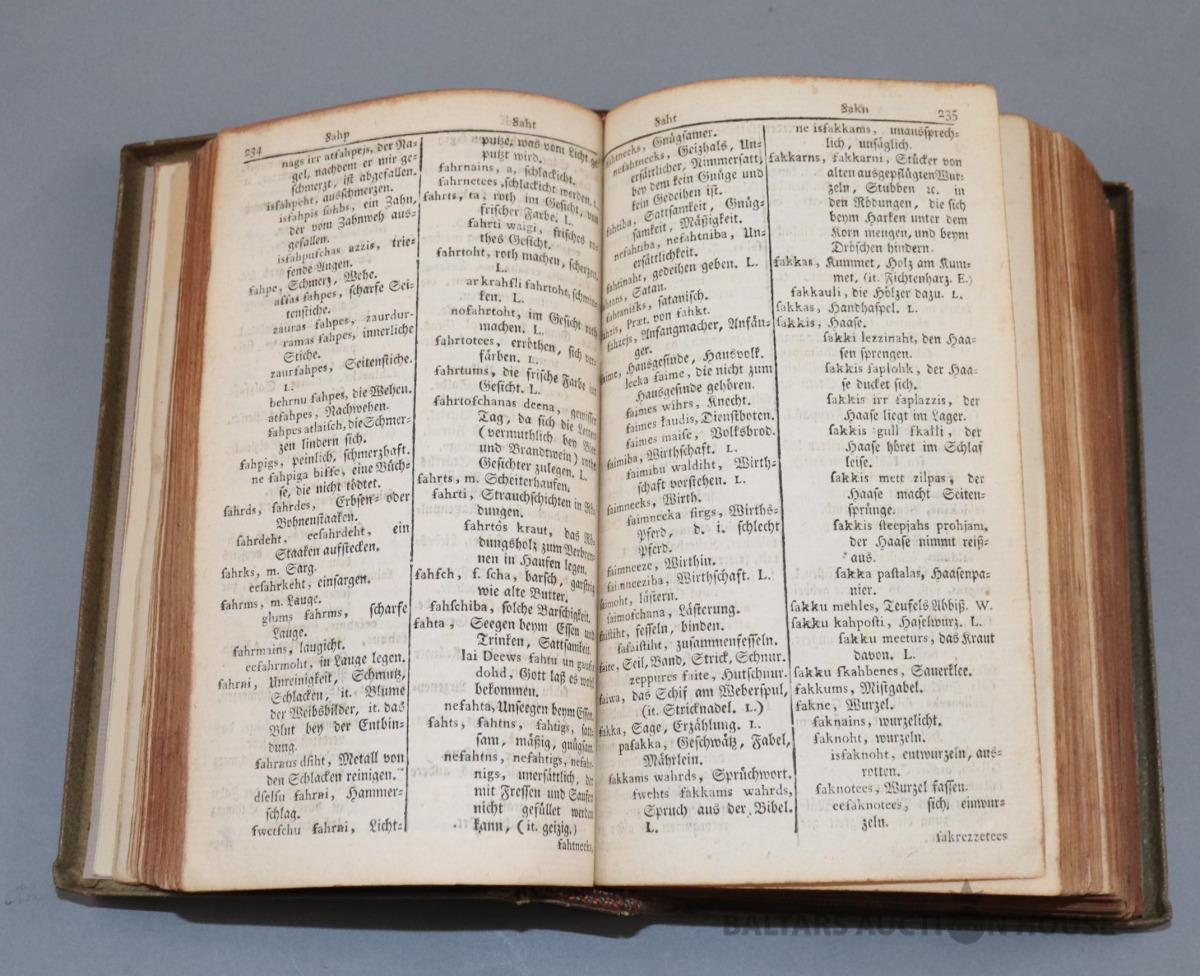 234
Sahp
Saht
nags irr atſahpejs, der Na-
gel, nachdem er mir ge-
ſchmerzt, iſt abgefallen.
isſahpeht, ausſchmerzen.
isſahpis ſohbs, ein Zahn,
der vom Zahnweh aus-
gefallen.
isſahpuſchas azzis, trie-
fende Augen.
ſahpe, Schmerz, Wehe.
aſſas ſahpes, ſcharfe Sei-
tenſtiche.
zauras ſahpes, zaurdur-
ramas ſahpes, innerliche
Stiche.
zaurſahpes, Seitenſtiche.
L.
behrnu ſahpes, die Wehen.
atſahpes, Nachwehen.
ſahpes atlaiſch, die Schmer-
zen lindern ſich.
ſahpigs, peinlich, ſchmerzhaft.
ne ſahpiga biſſe, eine Büch-
ſe, die nicht tödtet.
ſahrds, ſahrdes, Erbſen- oder
Bohnenſtaaken.
ſahrdeht, eeſahrdeht, ein
Staaken aufſtecken.
ſahrks, m. Sarg.
eeſahrkeht, einſargen.
ſahrms, m. Lauge.
glums ſahrms, ſcharfe
Lauge.
ſahrmains, laugicht.
eeſahrmoht, in Lauge legen.
ſahrni, Unreinigkeit, Schmutz,
Schlacken, it. Blume
der Weibsbilder, it. das
Blut bey der Entbin-
dung.
ſahrnus dſiht, Metall von
den Schlacken reinigen.
dſelſu ſahrni, Hammer-
ſchlag.
ſwetſchu ſahrni, Licht-
putze, was vom Licht ge-
putzt wird.
ſahrnains, a, ſchlackicht.
ſahrnetees, ſchlackicht werden. L.
ſahrts, ta, roth im Geſicht, von
friſcher Farbe. L.
ſahrti waigi, friſches ro-
thes Geſicht.
ſahrtoht, roth machen, ſcherzen.
L.
ar krahſli ſahrtoht, ſchmin-
ken. L.
noſahrtoht, im Geſicht roth
machen. L.
ſahrtotees, erröthen, ſich ver-
färben. L.
ſahrtums, die friſche Farbe im
Geſicht. L.
ſahrtoſchanas deena, gewiſſer
Tag, da ſich die Letten
(vermuthlich bey Bier
und Brandtwein) rothe
Geſichter zulegen. L.
ſahrts, m. Scheiterhaufen.
ſahrti, Strauchſchichten in Rö-
dungen.
ſahrtôs kraut, das Rö-
dungsholz zum Verbren-
nen in Haufen legen.
ſahrſch, f. ſcha, barſch, garſtig
wie alte Butter.
ſahſchiba, ſolche Barſchigkeit.
ſahta, Seegen beym Eſſen und
Trinken, Sattſamkeit.
lai Deews ſahtu un gauſu
dohd, Gott laß es wohl
bekommen.
neſahta, Unſeegen beym Eſſen.
ſahts, ſahtns, ſahtigs, ſatt-
ſam, mäßig, gnügſam.
neſahtns, neſahtigs, neſaht-
nigs, unerſättlich, der
mit Freſſen und Saufen
nicht gefüllet werden
kann, (it. geizig.)
ſahtneeks,
Saht
Sakn
235
ſahtneeks, Gnügſamer.
neſahtneeks, Geizhals, Un-
erſättlicher, Nimmerſatt,
bey dem kein Gnüge und
kein Gedeihen iſt.
ſahtiba, Sattſamkeit, Gnüg-
ſamkeit, Mäßigkeit.
neſahtiba, neſahtniba, Un-
erſättlichkeit.
ſahtinaht, gedeihen geben. L.
ſahtans, Satan.
ſahtaniſks, ſataniſch.
ſahzis, Præt. von ſahkt.
ſahzejs, Anfangmacher, Anfän-
ger.
ſaime, Hausgeſinde, Hausvolk.
leeka ſaime, die nicht zum
Hausgeſinde gehören.
ſaimes wihrs, Knecht.
ſaimes ļaudis, Dienſtboten.
ſaimes maiſe, Volksbrod.
ſaimiba, Wirthſchaft. L.
ſaimibu waldiht, Wirth-
ſchaft vorſtehen. L.
ſaimneeks, Wirth.
ſaimneeka ſirgs, Wirths-
Pferd, d. i. ſchlecht
Pferd.
ſaimneeze, Wirthin.
ſaimneeziba, Wirthſchaft. L.
ſaimoht, läſtern.
ſaimoſchana, Läſterung.
ſaiſtiht, feſſeln, binden.
ſaſaiſtiht, zuſammenfeſſeln.
ſaite, Seil, Band, Strick, Schnur.
zeppures ſaite, Hutſchnur.
ſaiwa, das Schif am Weberſpul,
(it. Stricknadel. L.)
ſakka, Sage, Erzählung. L.
paſakka, Geſchwätz, Fabel,
Mährlein.
ſakkams wahrds, Sprüchwort.
ſwehts ſakkams wahrds,
Spruch aus der Bibel.
L.
ne isſakkams, unausſprech-
lich, unſäglich.
ſakkarns, ſakkarni, Stücker von
alten ausgepflügten Wur-
zeln, Stubben ꝛc. in
den Rödungen, die ſich
beym Harken unter dem
Korn mengen, und beym
Dröſchen hindern.
ſakkas, Kummet, Holz am Kum-
met, (it. Fichtenharz. E.)
ſakkauli, die Hölzer dazu. L.
ſakkas, Handhaſpel. L.
ſakkis, Haaſe.
ſakki lezzinaht, den Haa-
ſen ſprengen.
ſakkis ſaplohk, der Haa-
ſe ducket ſich.
ſakkis irr ſaplazzis, der
Haaſe liegt im Lager.
ſakkis gull ſkaſſi, der
Haaſe höret im Schlaf
leiſe.
ſakkis mett zilpas, der
Haaſe macht Seiten-
ſprünge.
ſakkis ſteepjahs prohjam,
der Haaſe nimmt reiß-
aus.
ſakka paſtalas, Haaſenpa-
nier.
ſakku mehles, Teufels Abbiß. W.
ſakku kahpoſti, Haſelwurz. L.
ſakku meeturs, das Kraut
davon. L.
ſakku ſkahbenes, Sauerklee.
ſakkums, Miſtgabel.
ſakne, Wurzel.
ſaknains, wurzelicht.
ſaknoht, wurzeln.
isſaknoht, entwurzeln, aus-
rotten.
ſaknotees, Wurzel faſſen.
eeſaknotees, ſich einwur-
zeln.
ſakrezzetees
BALTARS AUCTION HOUSE